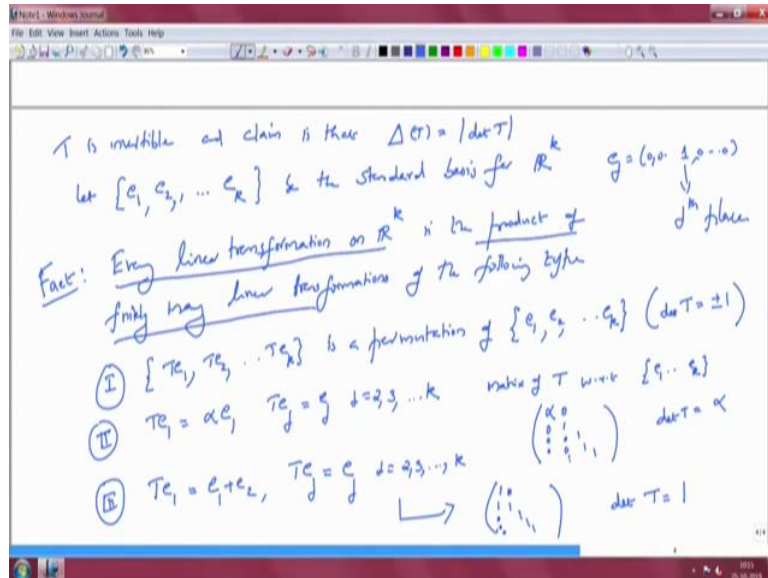 Note1 - Windows Journal
File Edit View Insert Actions Tools Help
T is invertible and claim is that Δ(T) = |det T|
let {e₁, e₂, ... e_k} be the standard basis for ℝᵏ e_j = (0,0.. 1,0...0)
↓
jᵗʰ place
Fact: Every linear transformation on ℝᵏ is the product of
finitely many linear transformations of the following type
I {Te₁, Te₂, ... Te_k} is a permutation of {e₁, e₂, .. e_k} (det T = ±1)
II Te₁ = αe₁ Te_j = e_j j=2,3,...k matrix of T w.r.t {e₁.. e_k} det T = α
III Te₁ = e₁+e₂, Te_j = e_j j=2,3,..,k det T = 1
4/4
4